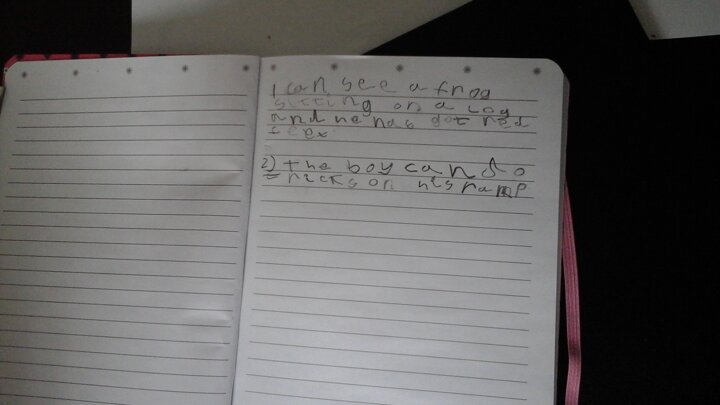 I can see a frog
sitting on a log
and he has got red
feex
2) the boy can do
tricks on his ramp